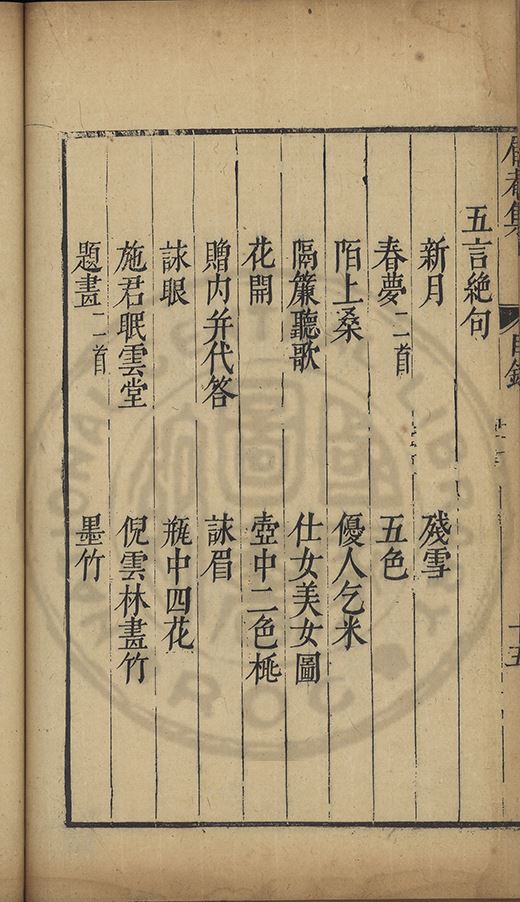 五言絕句
新月　殘雪
春夢二首　五色
陌上桑　優人乞米
隔簾聽歌　仕女美女圖
花開　壺中二色桃
贈內并代答　詠眉
詠眼　瓶中四花
施君眠雲堂　倪雲林畫竹
題畫二首　墨竹
目錄
十五